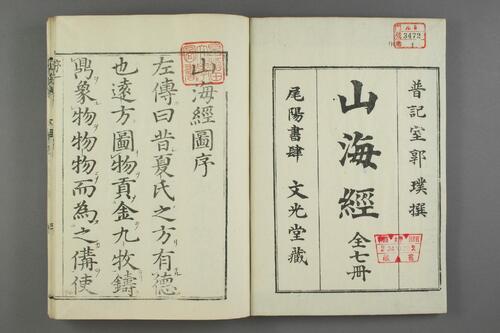 3472
1
普記室郭璞撰
山海經
全七冊
尾陽書肆 文光堂藏
山海經圖序
左傳曰昔夏氏之方有德
也遠方圖物貢金九牧鑄
鼎象物物物而為之備使
序